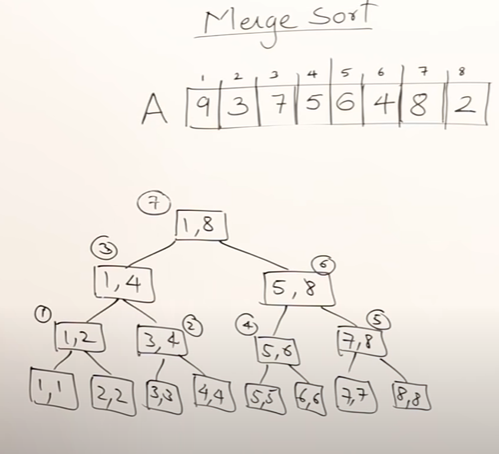 Merge Sort
1 2 3 4 5 6 7 8
A 9 3 7 5 6 4 8 2
7
1,8
3 6
1,4 5,8
1 2 4 5
1,2 3,4 5,6 7,8
1,1 2,2 3,3 4,4 5,5 6,6 7,7 8,8